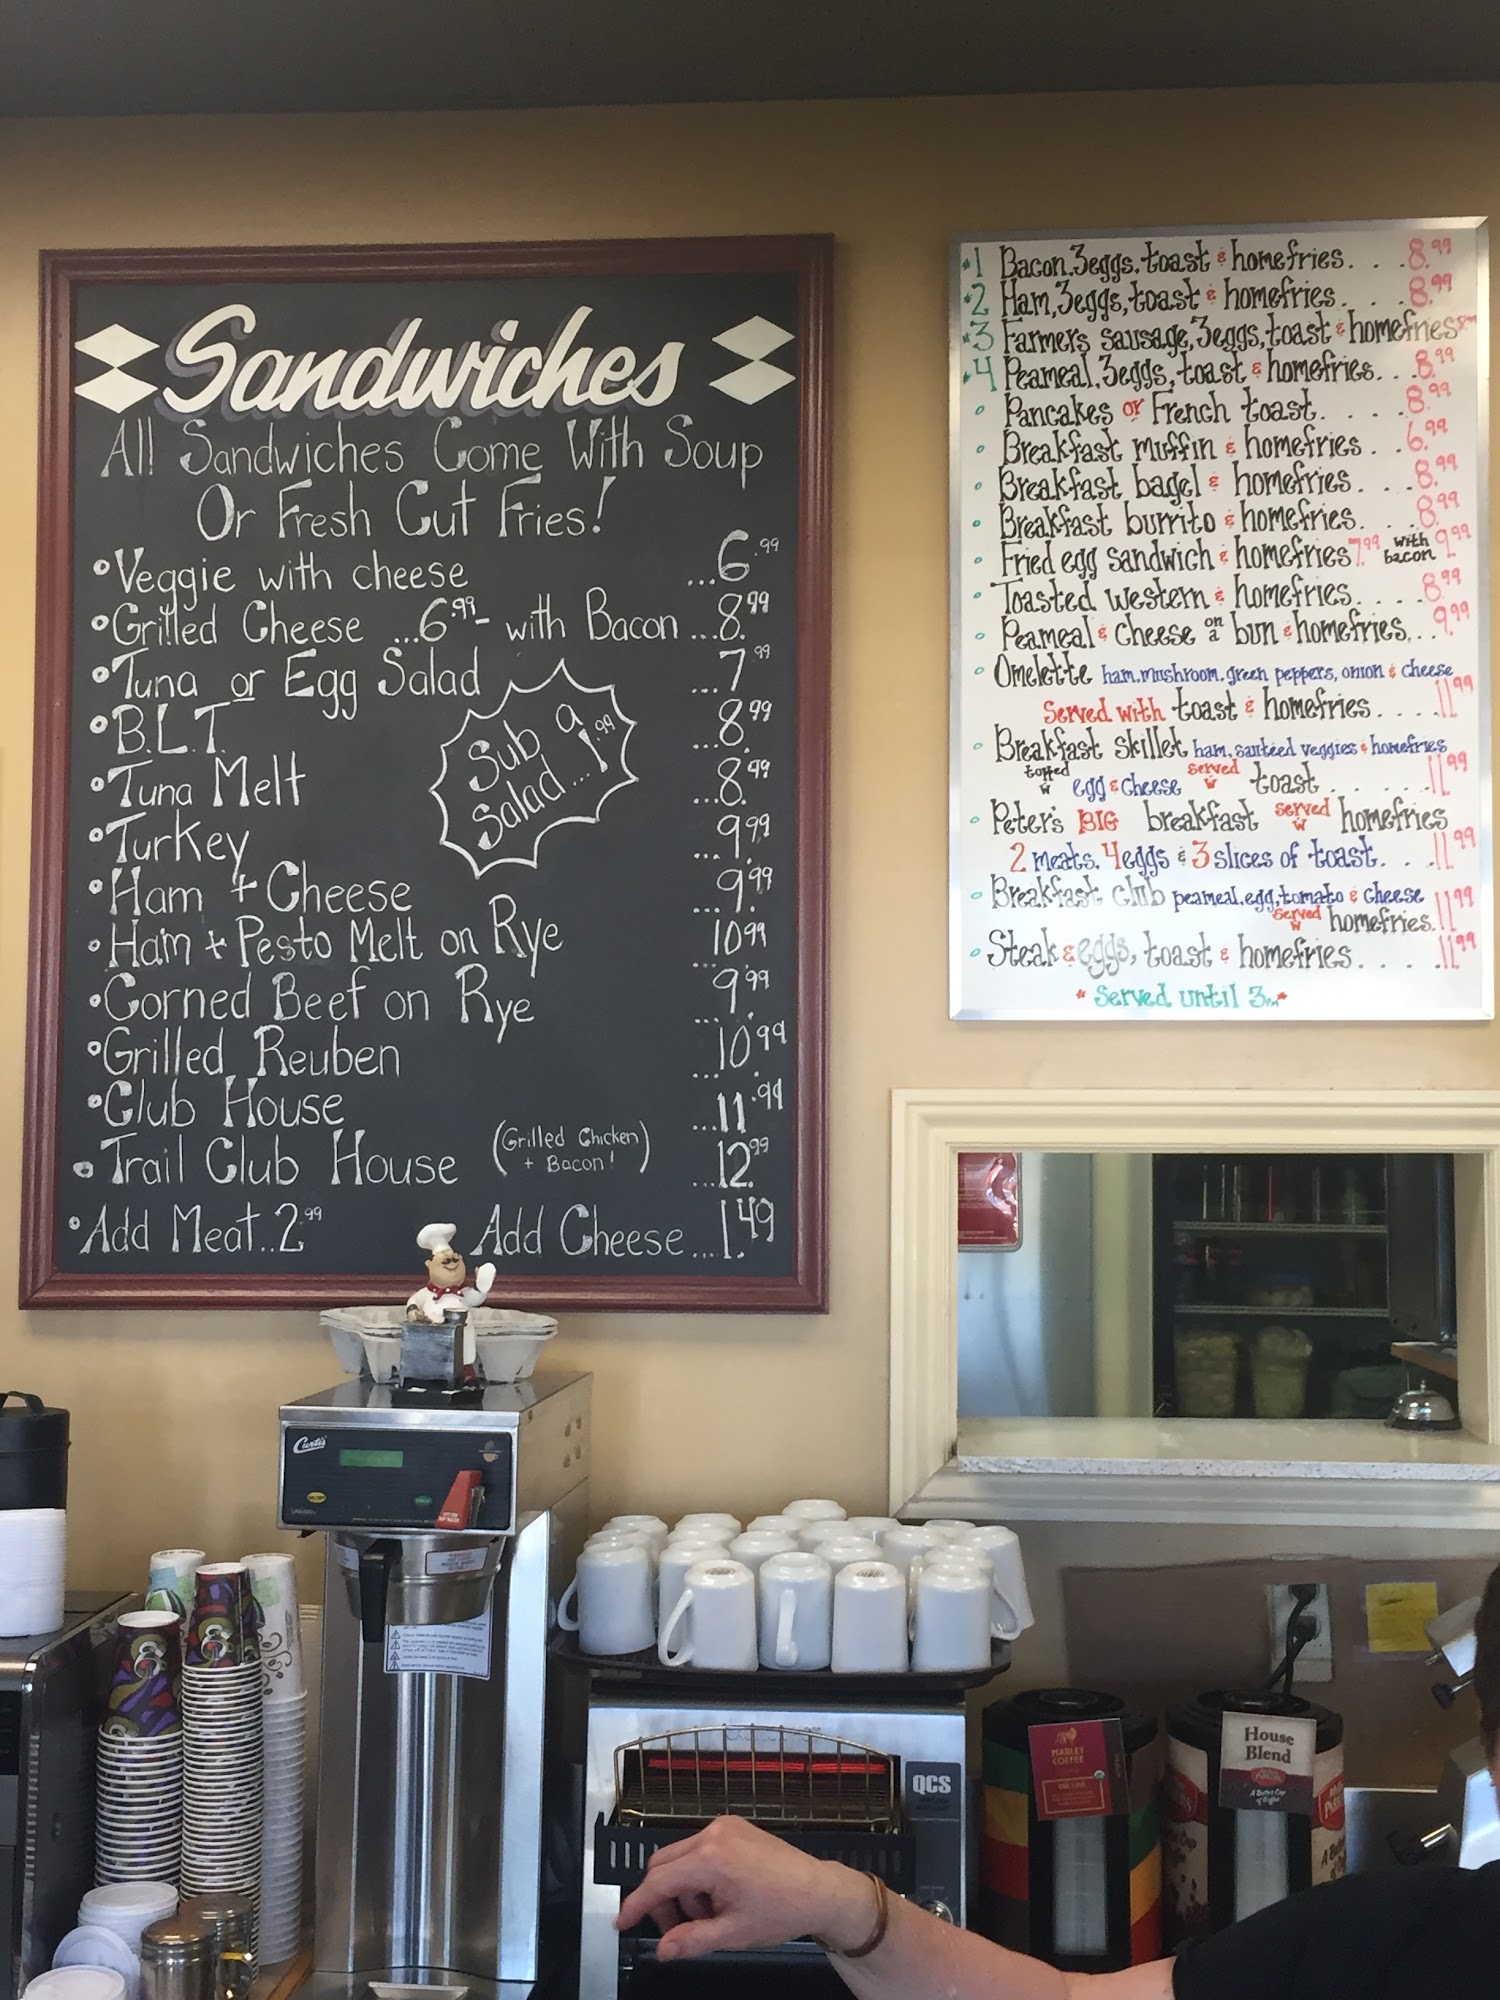 Sandwiches
All Sandwiches Come With Soup
Or Fresh Cut Fries!
•Veggie with cheese ...6.99
•Grilled Cheese ...6.99- with Bacon ...8.99
•Tuna or Egg Salad ...7.99
•B.L.T. ...8.99
•Tuna Melt ...8.99
•Turkey ...9.99
•Ham + Cheese ...9.99
•Ham + Pesto Melt on Rye ...10.99
•Corned Beef on Rye ...9.99
•Grilled Reuben ...10.99
•Club House ...11.99
•Trail Club House (Grilled Chicken + Bacon!) ...12.99
•Add Meat..2.99 Add Cheese...1.49
Sub a
Salad...1.99
#1 Bacon, 3eggs, toast & homefries. . .8.99
#2 Ham, 3eggs, toast & homefries. . .8.99
#3 Farmers sausage, 3eggs, toast & homefries
#4 Peameal, 3eggs, toast & homefries. . .8.99
Pancakes or French toast. . . . .8.99
Breakfast muffin & homefries. . .6.99
Breakfast bagel & homefries. . . .8.99
Breakfast burrito & homefries. . . .8.99
Fried egg sandwich & homefries 7.99 with bacon 9.99
Toasted western & homefries. . . . .8.99
Peameal & cheese on a bun & homefries. . .9.99
Omelette ham, mushroom, green peppers, onion & cheese
Served with toast & homefries. . . . 11.99
Breakfast Skillet ham, sautéed veggies & homefries
topped w egg & cheese served w toast . . . . . . 11.99
Peter's BIG breakfast served w homefries
2 meats, 4eggs & 3 slices of toast. . . 11.99
Breakfast club peameal, egg, tomato & cheese 11.99
served w homefries.
Steak & eggs, toast & homefries. . . . .11.99
* Served until 3pm *
Curtis
QCS
MARLEY
COFFEE
ONE LOVE
House
Blend
A Better Cup
of Coffee